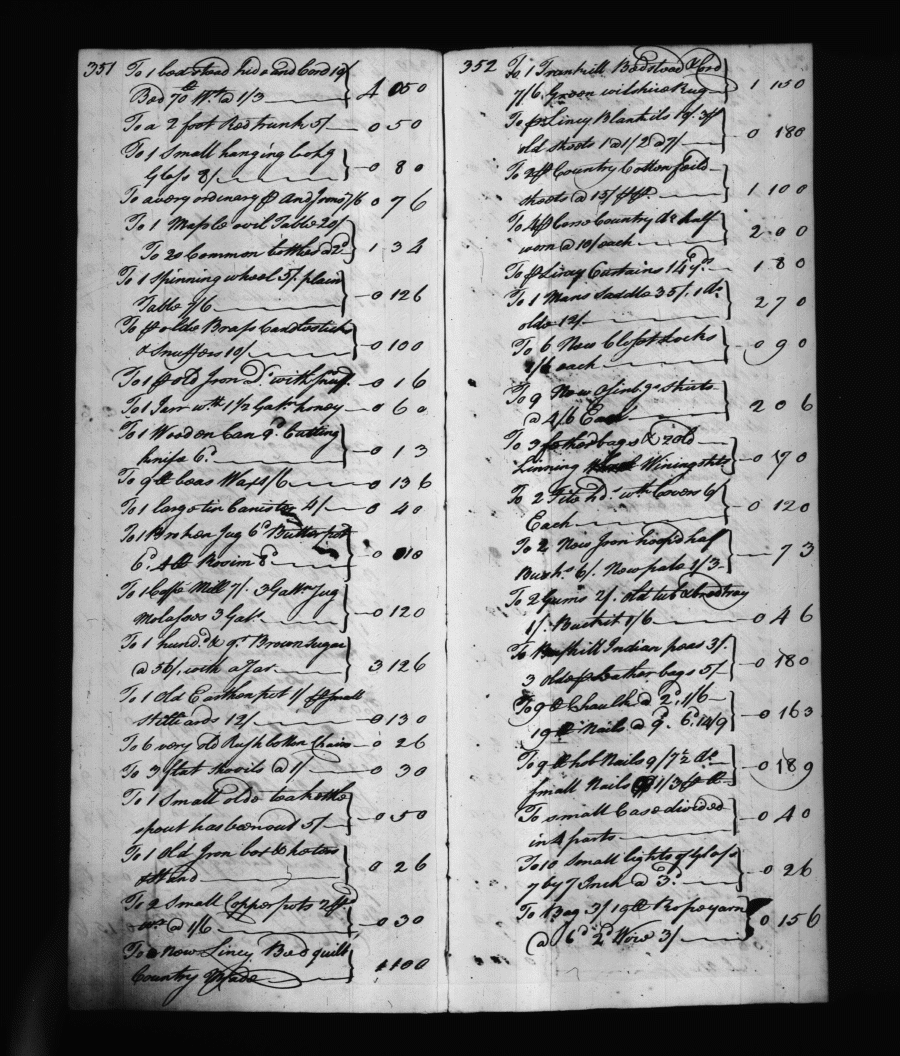 351
To 1 bedstead hide and Cord 19/
Bed 70 lb Wt @ 1/3 4 05 0
To a 2 foot Red trunk 5/ 0 5 0
To 1 Small hanging lookg
Glass 8/ 0 8 0
To a very ordenary pr Andirons 7/6 0 7 6
To 1 Maple ovil Table 20/
To 20 Common bottles @ 2d 1 3 4
To 1 Spinning wheel 5/. plain
Table 7/6 0 12 6
To pr olde Brass Candlestick
& Snuffers 10/ 0 10 0
To 1 pr old Iron Do with snuf. 0 1 6
To 1 Jarr wth 1 1/2 Galn honey 0 6 0
To 1 Wooden Can 9d Cutting
knife 6d 0 1 3
To 9 lb beas Wax 1/6 0 13 6
To 1 large tin Canister 4/ 0 4 0
To 1 Broken Jug 6d Butter pot
6d 4 lb Rosim 8d 0 1 0
To 1 Coffe Mill 7/. 3 Galln Jug
Molasses 3 Galn 0 12 0
To 1 hund. & qr Brown Sugar
@ 50/. with a Jar 3 12 6
To 1 Old Earthen pot 1/ pr small
Stilleards 12/ 0 13 0
To 6 very old Rush bottom Chairs 0 2 6
To 3 flat shovils @ 1/ 0 3 0
To 1 Small olde teakettle
spout has been out 5/ 0 5 0
To 1 Old Iron box & heters
& Stand 0 2 6
To 2 Small Copper pots
@ 1/6 0 3 0
To a New Lincy Bed quilt
Country Made 1 10 0
352
To 1 Trunkill Bedstead & Cord
7/6. Green wilshire Rug 1 15 0
To pr Lincy Blankits 19/. 3 pr
old sheets 1 @ 1/ 2 @ 7/ 0 18 0
To 2 pr Country Cotton feild
sheets @ 15/ pr 1 10 0
To 4 pr Corse Country Do half
worn @ 10/ each 2 0 0
To pr Lincy Curtains 14 yds 1 8 0
To 1 Mans Saddle 35/. 1 do
olde 12/. 2 7 0
To 6 New Closet Locks
1/6 each 0 9 0
To 9 New sheets
@ 4/6 Each 2 0 6
To 3 bags & 2 old
Linning Wining shts 0 7 0
To 2 hds. wth Covers 6/
Each 0 12 0
To 2 New Iron hoop'd haf
Bushs. 6/. New pale 1/3 7 3
To 2 Gums 2/. Old tub & bredtray
1/. Bucket 1/6 0 4 6
To Indian peas 3/.
3 olde Leather bags 5/ 0 18 0
To 9 lb Chaulk @ 2d. 1/6
19 lb Nails @ 9d. 6d. 14/9 0 16 3
To 9 lb hob Nails 9/7 1/2 do
small Nails @ 1/3 0 18 9
To small Case divided
in 4 parts 0 4 0
To 10 Small lights of Glass
7 by 7 Inch @ 3d. 0 2 6
To Bag 3/ 19 lb Rope yarn
@ 6d 2d Wire 3/ 0 15 6